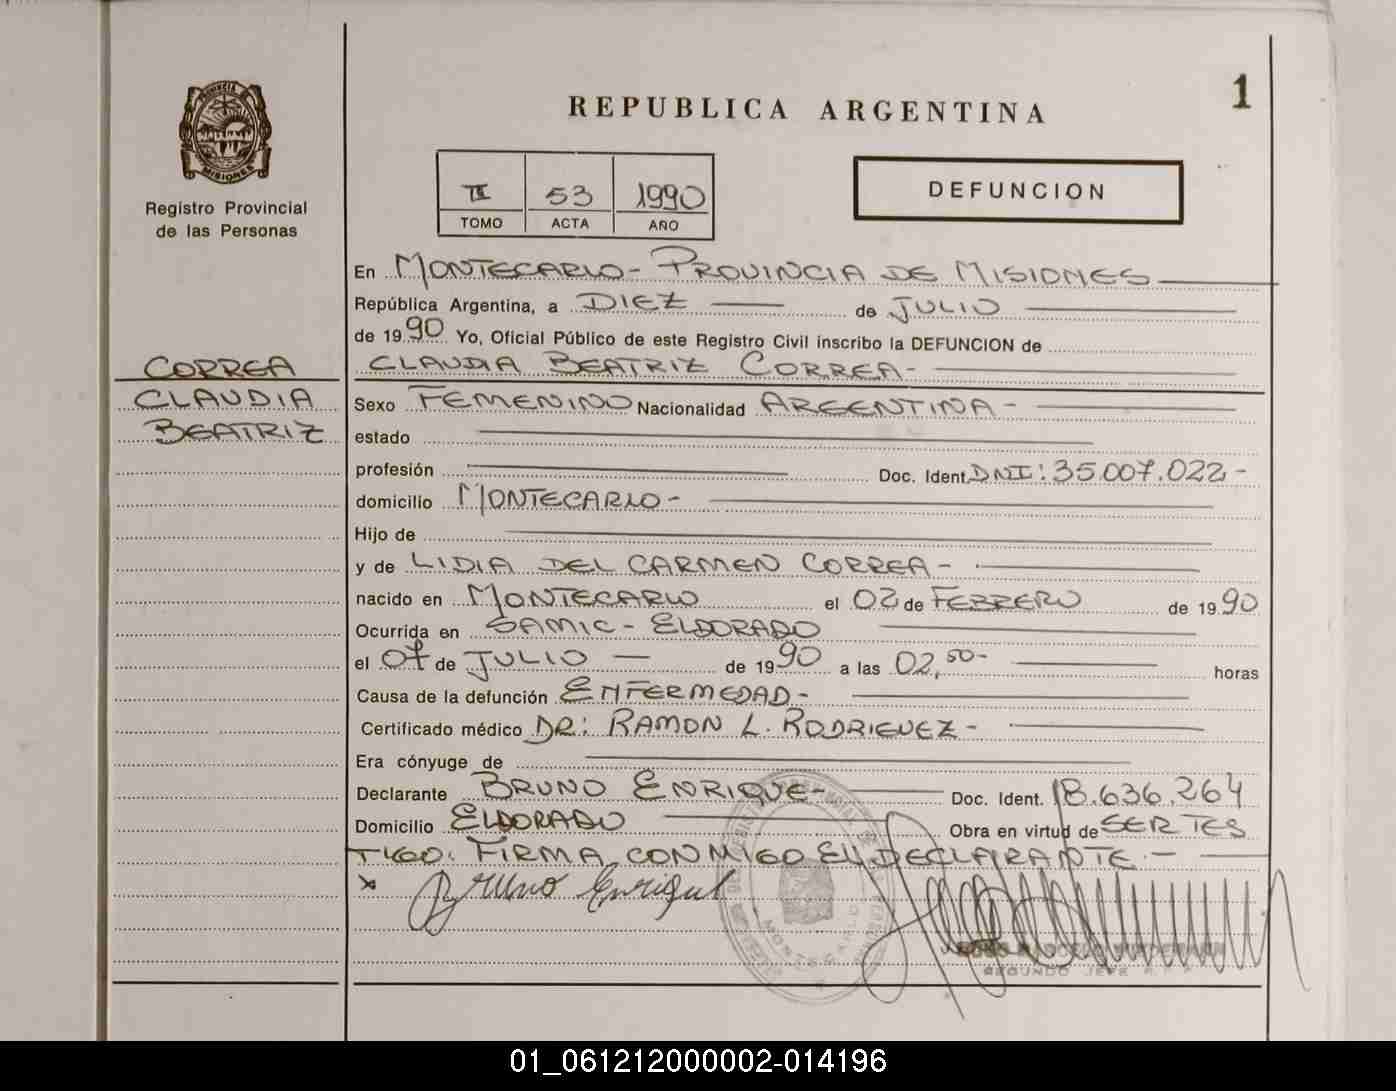 1
PROVINCIA DE
MISIONES
Registro Provincial
de las Personas
REPUBLICA ARGENTINA
II 53 1990
TOMO ACTA AÑO
DEFUNCION
En MONTECARLO - PROVINCIA DE MISIONES
República Argentina, a DIEZ de JULIO
de 1990 Yo, Oficial Público de este Registro Civil inscribo la DEFUNCION de
CORREA
CLAUDIA
BEATRIZ
CLAUDIA BEATRIZ CORREA-
Sexo FEMENINO Nacionalidad ARGENTINA-
estado
profesión Doc. Ident. DNI: 35.007.022-
domicilio MONTECARLO-
Hijo de
y de LIDIA DEL CARMEN CORREA-
nacido en MONTECARLO el 02 de FEBRERO de 1990
Ocurrida en SAMIC - ELDORADO
el 07 de JULIO de 1990 a las 02,50- horas
Causa de la defunción ENFERMEDAD-
Certificado médico DR: RAMON L. RODRIGUEZ-
Era cónyuge de
Declarante BRUNO ENRIQUE- Doc. Ident. 18.636.264
Domicilio ELDORADO Obra en virtud de SER TES
TIGO. FIRMA CONMIGO EL DECLARANTE.-
x Bruno Enrique
MONTECARLO
SEGUNDO JEFE
01_061212000002-014196